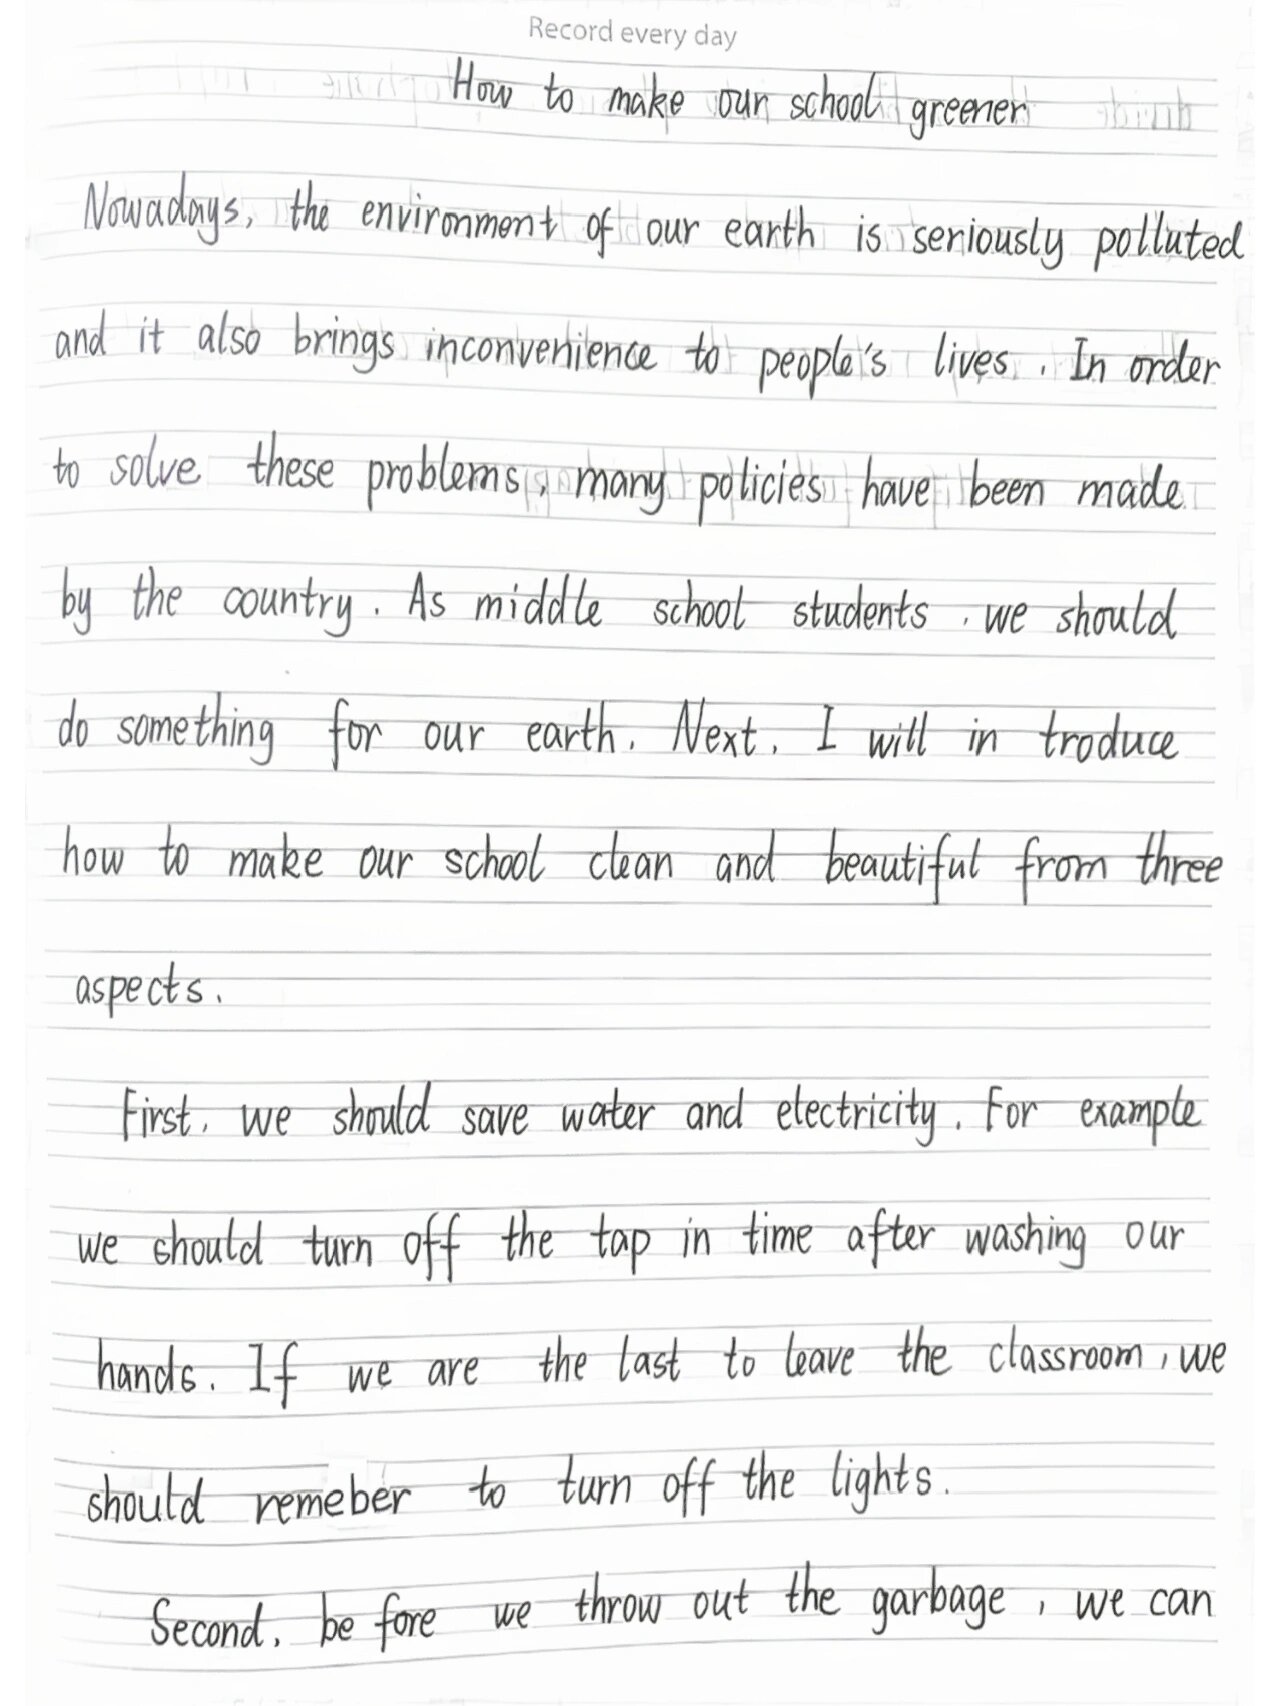 Record every day
How to make our school greener
Nowadays, the environment of our earth is seriously polluted
and it also brings inconvenience to people's lives. In order
to solve these problems, many policies have been made
by the country. As middle school students, we should
do something for our earth. Next, I will in troduce
how to make our school clean and beautiful from three
aspects.
First, we should save water and electricity. For example
we should turn off the tap in time after washing our
hands. If we are the last to leave the classroom, we
should remeber to turn off the lights.
Second, be fore we throw out the garbage, we can